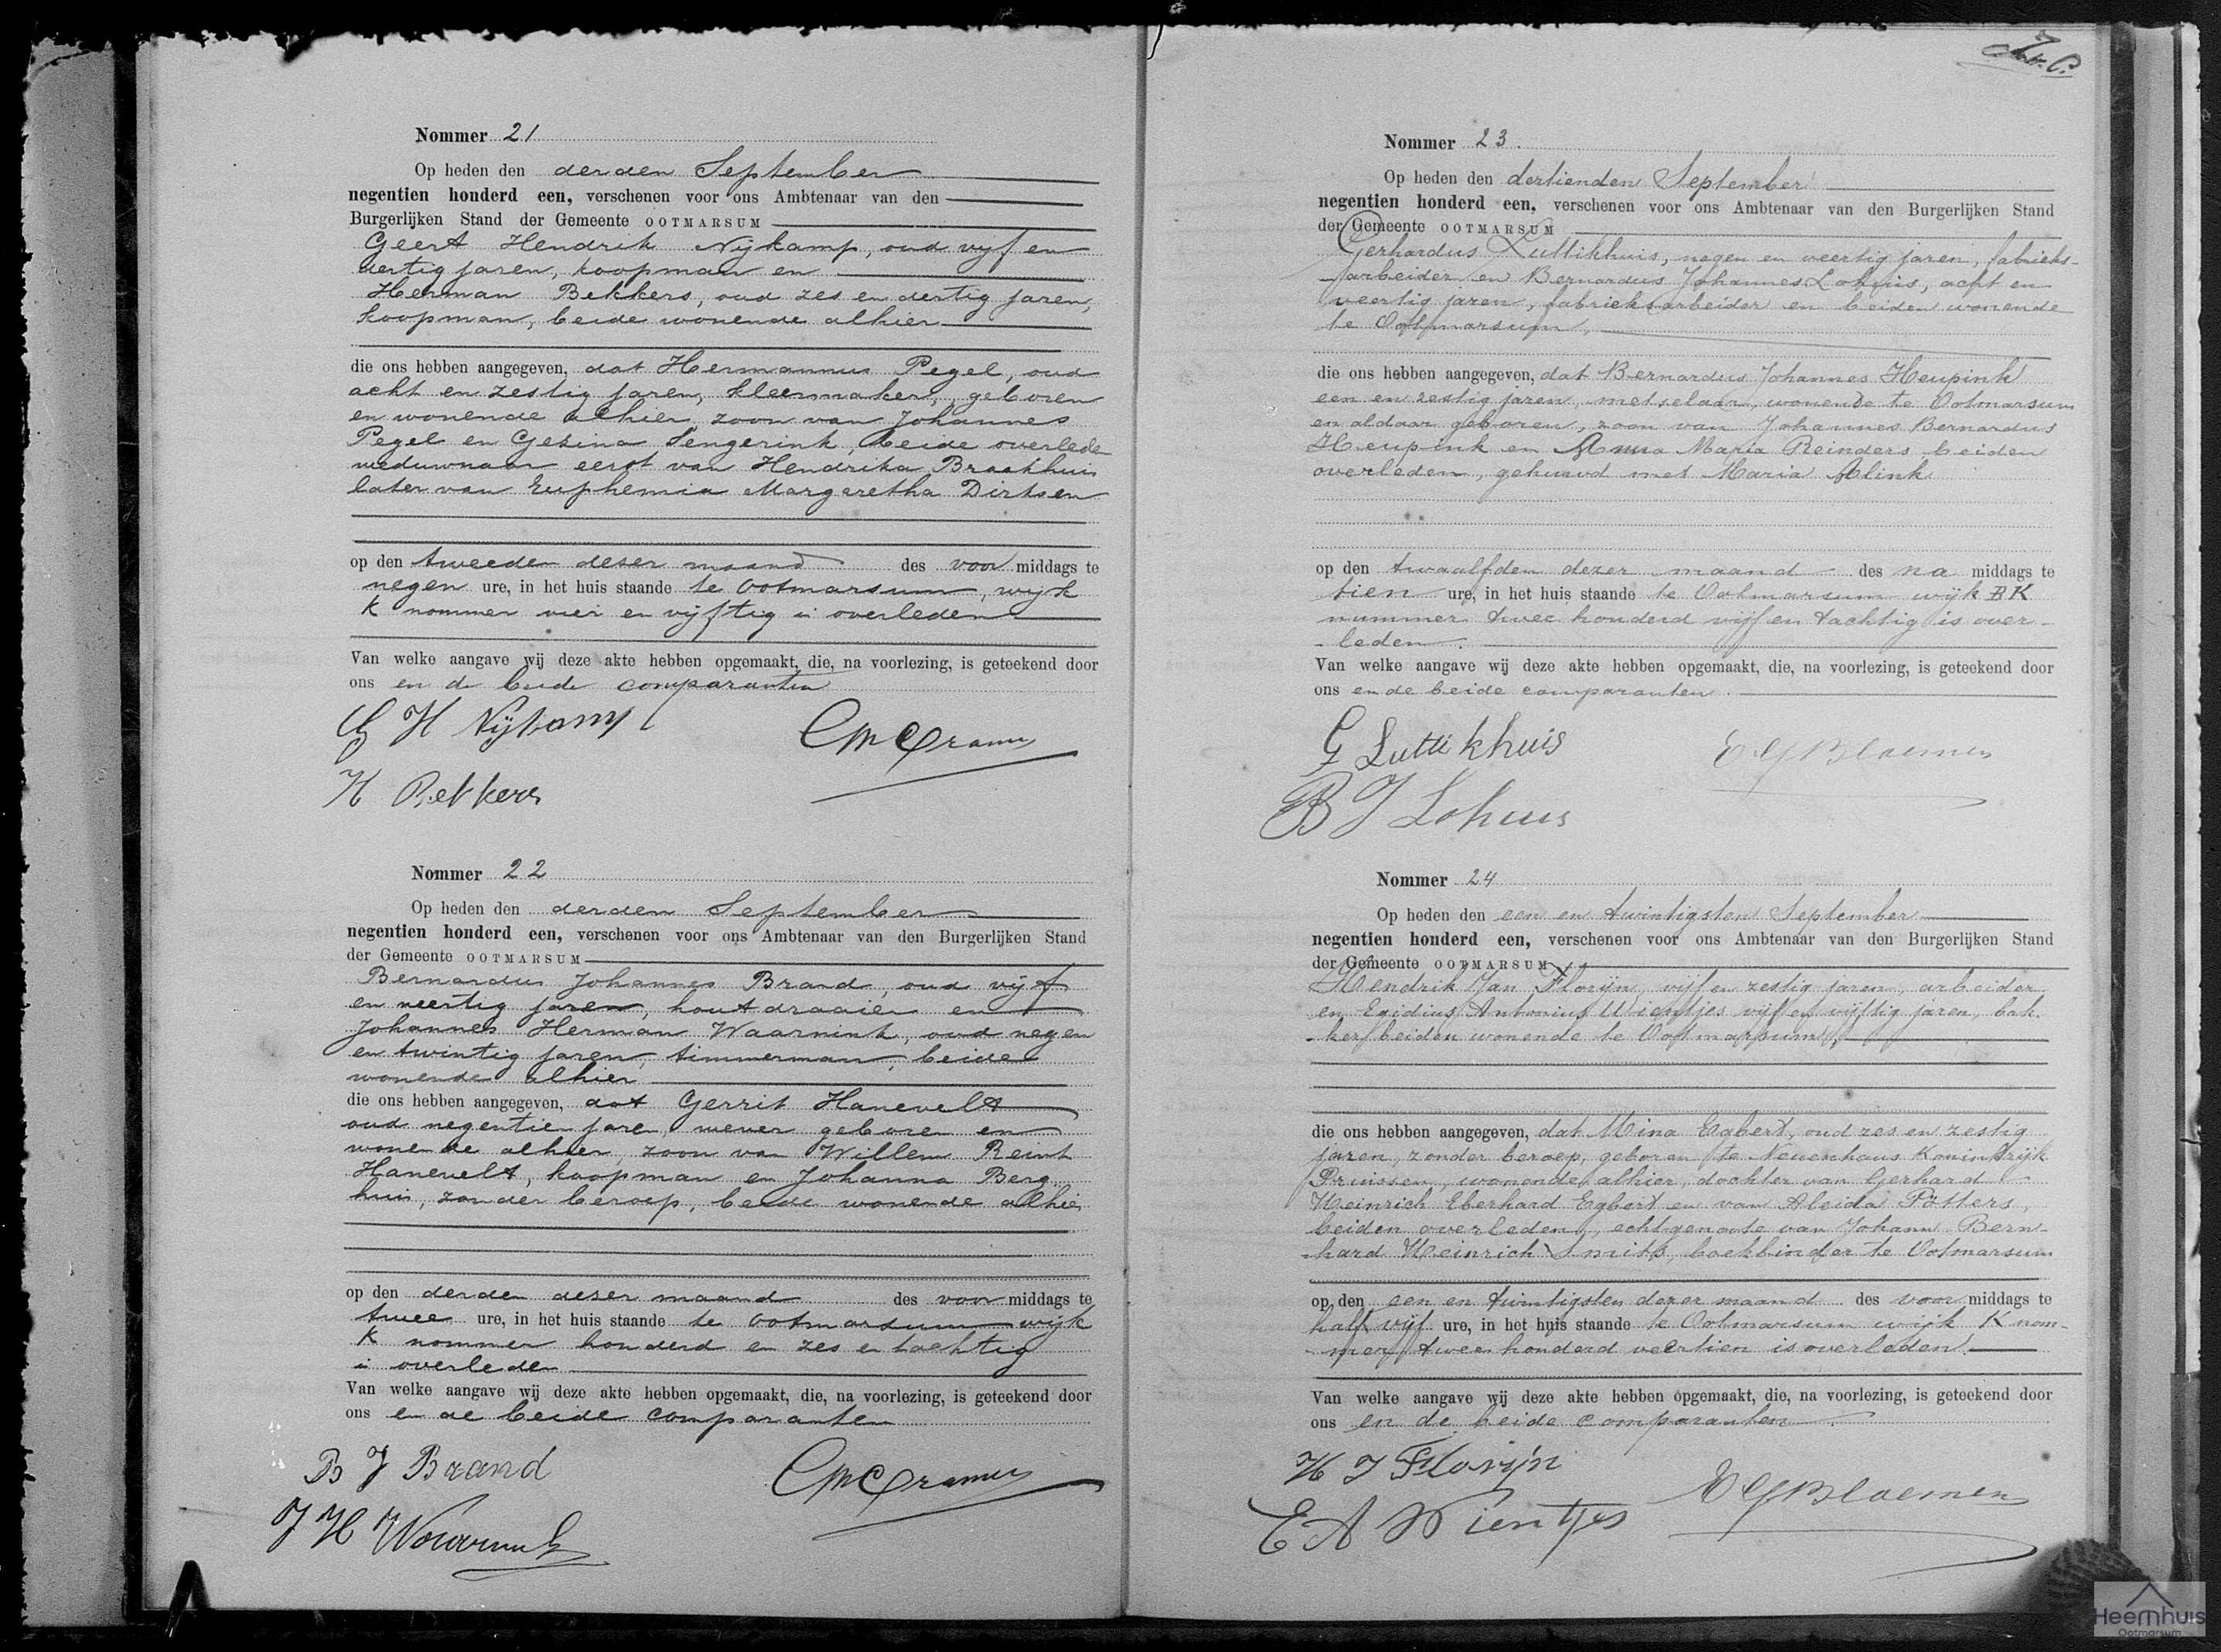 Nommer 21
Op heden den derden September
negentien honderd een, verschenen voor ons Ambtenaar van den
Burgerlijken Stand der Gemeente OOTMARSUM
Geert Hendrik Nijkamp, oud vijf en
dertig jaren, koopman en
Herman Bekkers, oud zes en dertig jaren,
koopman, beide wonende alhier
die ons hebben aangegeven, dat Hermannus Pegel, oud
acht en zestig jaren, kleermaker, geboren
en wonende alhier, zoon van Johannes
Pegel en Gesina Sengerink, beide overlede
weduwnaar eerst van Hendrika Braakhuis
later van Euphemia Margaretha Dirksen
op den tweeden deser maand des voor middags te
negen ure, in het huis staande te Ootmarsum, wijk
K nommer vier en vijftig is overleden
Van welke aangave wij deze akte hebben opgemaakt, die, na voorlezing, is geteekend door
ons en de beide comparanten
G H Nijkamp
H Bekkers
Nommer 22
Op heden den derden September
negentien honderd een, verschenen voor ons Ambtenaar van den Burgerlijken Stand
der Gemeente OOTMARSUM
Bernardus Johannes Brand, oud vijf
en veertig jaren, houtdraaier en
Johannes Herman Waarnink, oud negen
en twintig jaren, timmerman, beide
wonende alhier
die ons hebben aangegeven, dat Gerrit Hanevelt
oud negentien jare, wever geboren en
wonende alhier, zoon van Willem Reint
Hanevelt, koopman en Johanna Berg
huis, zonder beroep, beide wonende alhier
op den derden deser maand des voor middags te
twee ure, in het huis staande te Ootmarsum wijk
K nommer honderd en zes en tachtig
is overleden
Van welke aangave wij deze akte hebben opgemaakt, die, na voorlezing, is geteekend door
ons en de beide comparanten
B J Brand
J H Waarnink
Nommer 23.
Op heden den dertienden September
negentien honderd een, verschenen voor ons Ambtenaar van den Burgerlijken Stand
der Gemeente OOTMARSUM
Gerhardus Luttikhuis, negen en veertig jaren, fabrieks-
arbeider en Bernardus Johannes Lohuis, acht en
veertig jaren, fabrieksarbeider en beiden wonende
te Ootmarsum,
die ons hebben aangegeven, dat Bernardus Johannes Heupink
een en zestig jaren, metselaar, wonende te Ootmarsum
en aldaar geboren, zoon van Johannes Bernardus
Heupink en Anna Maria Reinders beiden
overleden, gehuwd met Maria Alink
op den twaalfden dezer maand des na middags te
tien ure, in het huis staande te Ootmarsum wijk B K
nummer twee honderd vijf en tachtig is over-
-leden.
Van welke aangave wij deze akte hebben opgemaakt, die, na voorlezing, is geteekend door
ons en de beide comparanten.
G Luttikhuis
E G Bloemen
B J Lohuis
Nommer 24
Op heden den een en twintigsten September
negentien honderd een, verschenen voor ons Ambtenaar van den Burgerlijken Stand
der Gemeente OOTMARSUM
Hendrik Jan Florijn, vijf en zestig jaren, arbeider
en Egidius Antonius Wientjes vijf en vijftig jaren, bak-
-ker beiden wonende te Ootmarsum,
die ons hebben aangegeven, dat Mina Egbert, oud zes en zestig
jaren, zonder beroep, geboren te Neuenhaus Koninkrijk
Pruissen, wonende alhier, dochter van Gerhard
Heinrich Eberhard Egbert en van Aleida Pötters,
beiden overleden, echtgenoote van Johann Bern-
-hard Heinrich Smits, boekbinder te Ootmarsum
op den een en twintigsten dezer maand des voor middags te
half vijf ure, in het huis staande te Ootmarsum wijk K nom-
-mer twee honderd veertien is overleden.
Van welke aangave wij deze akte hebben opgemaakt, die, na voorlezing, is geteekend door
ons en de beide comparanten.
H J Florijn
E G Bloemen
E A Wientjes
Heemhuis
Ootmarsum